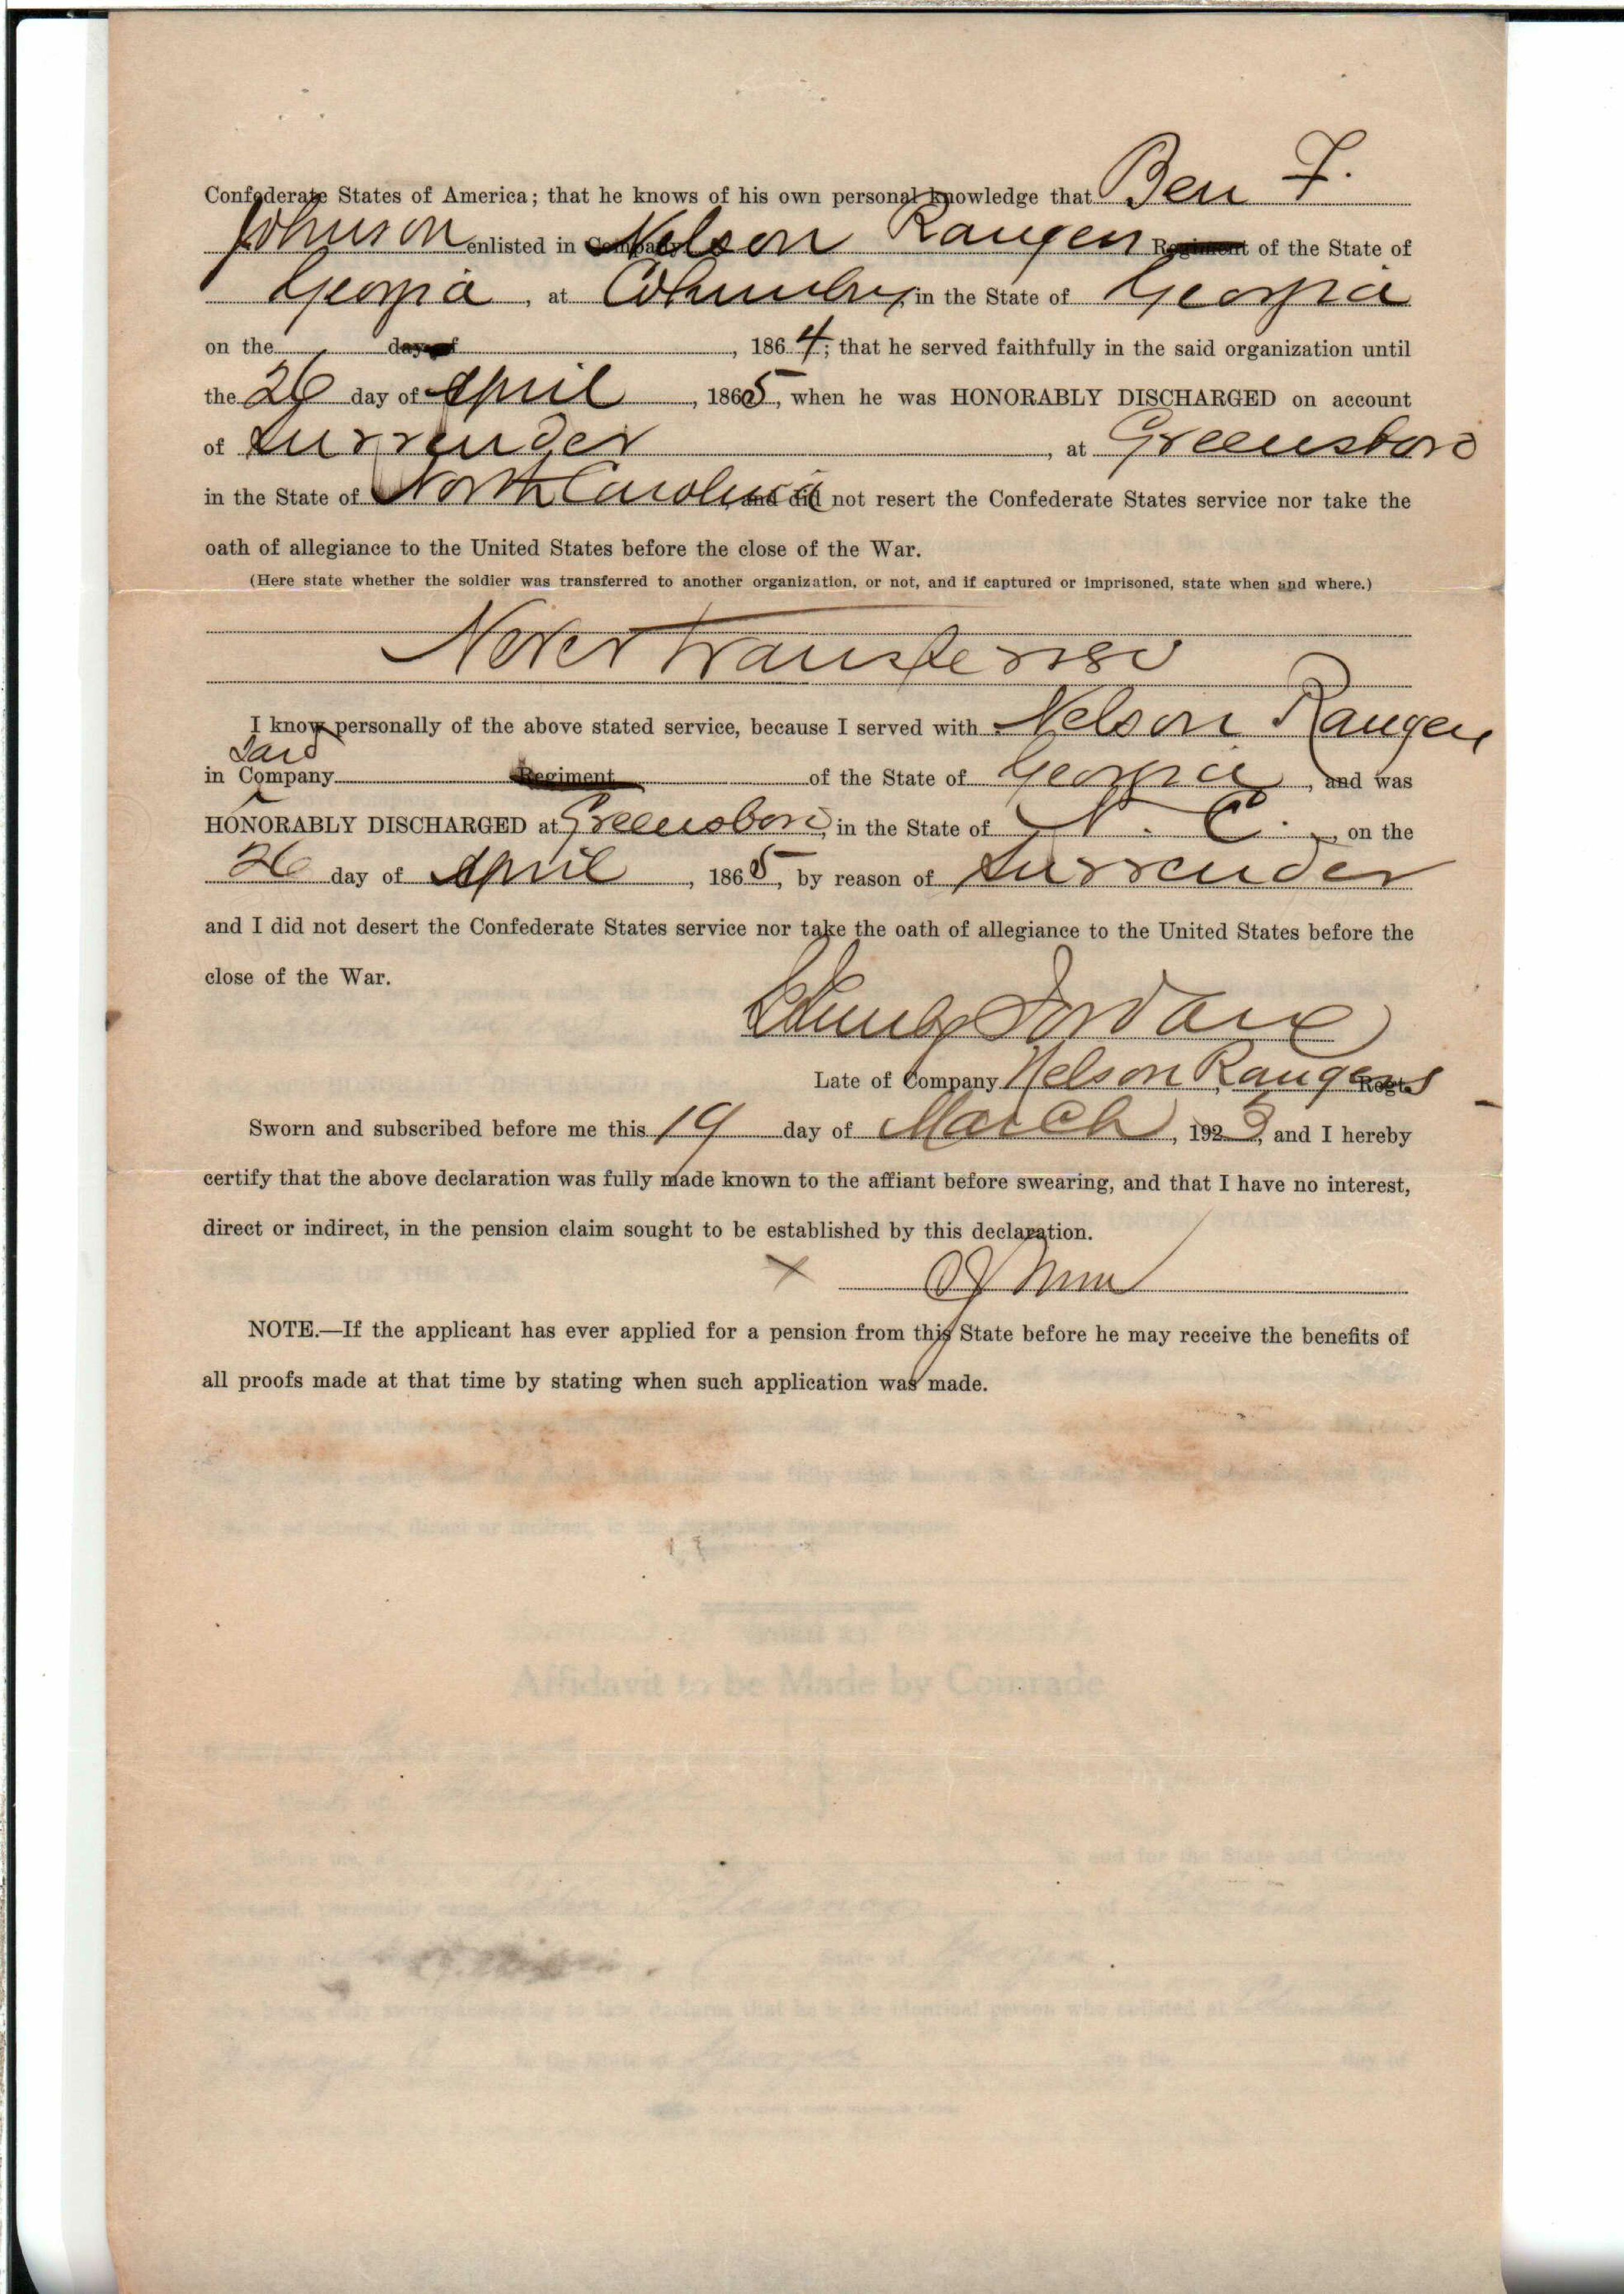 Confederate States of America; that he knows of his own personal knowledge that Ben F.
Johnson enlisted in Company Nelson Rangers Regiment of the State of
Georgia, at Columbus, in the State of Georgia
on the day of , 1864; that he served faithfully in the said organization until
the 26 day of April, 1865, when he was HONORABLY DISCHARGED on account
of Surrender, at Greensboro
in the State of North Carolina, and did not resert the Confederate States service nor take the
oath of allegiance to the United States before the close of the War.
(Here state whether the soldier was transferred to another organization, or not, and if captured or imprisoned, state when and where.)
Never Transferred
I know personally of the above stated service, because I served with Nelson Rangers
Said
in Company Regiment of the State of Georgia, and was
HONORABLY DISCHARGED at Greensboro, in the State of N. C., on the
26 day of April, 1865, by reason of Surrender
and I did not desert the Confederate States service nor take the oath of allegiance to the United States before the
close of the War.
Jordan
Late of Company Nelson Rangers Regt.
Sworn and subscribed before me this 19 day of March, 1923, and I hereby
certify that the above declaration was fully made known to the affiant before swearing, and that I have no interest,
direct or indirect, in the pension claim sought to be established by this declaration.
X
NOTE.—If the applicant has ever applied for a pension from this State before he may receive the benefits of
all proofs made at that time by stating when such application was made.
Affidavit to be Made by Comrade